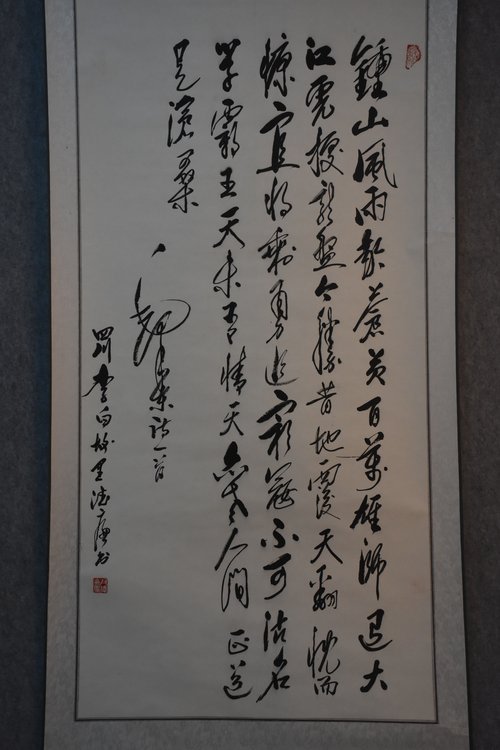 鍾山風雨起蒼黃百萬雄師過大
江虎據龍盤今勝昔地覆天翻慨而
慷宜將剩勇追窮寇不可沽名
學霸王天若有情天亦老人間正道
是滄桑
毛澤東詩一首
四川李白故里德書